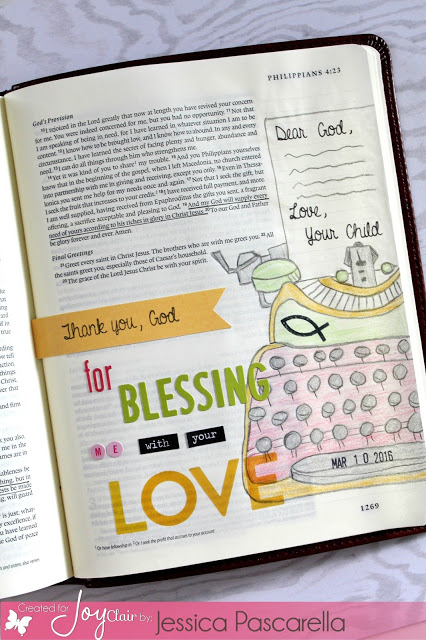 PHILIPPIANS 4:23
God's Provision
10 I rejoiced in the Lord greatly that now at length you have revived your concern
for me. You were indeed concerned for me, but you had no opportunity. 11 Not that
I am speaking of being in need, for I have learned in whatever situation I am to be
content. 12 I know how to be brought low, and I know how to abound. In any and every
circumstance, I have learned the secret of facing plenty and hunger, abundance and
need. 13 I can do all things through him who strengthens me.
14 Yet it was kind of you to share my trouble. 15 And you Philippians yourselves
know that in the beginning of the gospel, when I left Macedonia, no church entered
into partnership with me in giving and receiving, except you only. 16 Even in Thessa-
lonica you sent me help for my needs once and again. 17 Not that I seek the gift, but
I seek the fruit that increases to your credit. 18 I have received full payment, and more.
I am well supplied, having received from Epaphroditus the gifts you sent, a fragrant
offering, a sacrifice acceptable and pleasing to God. 19 And my God will supply every
need of yours according to his riches in glory in Christ Jesus. 20 To our God and Father
be glory forever and ever. Amen.
Final Greetings
21 Greet every saint in Christ Jesus. The brothers who are with me greet you. 22 All
the saints greet you, especially those of Caesar's household.
23 The grace of the Lord Jesus Christ be with your spirit.
Dear God,
Love,
Your Child
Thank you, God
for
BLESSING
ME with your
LOVE
MAR 10 2016
1269
Or have fellowship in Or I seek the profit that accrues to your account
and firm
k you also,
me in the
ames are in
ableness be
thing, but in
ests be made
ng, will guard
is just, what-
y excellence, if
ou have learned
e God of peace
Created for JoyClair by: Jessica Pascarella